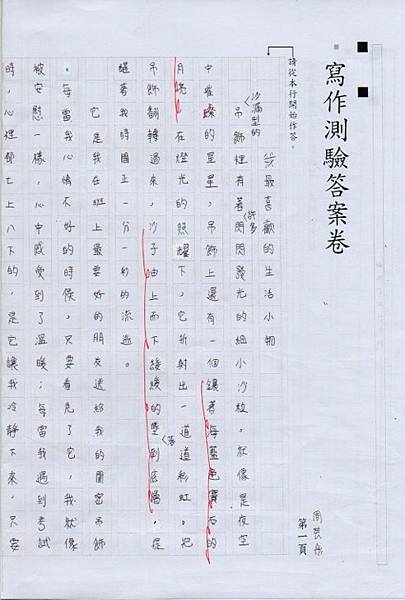 寫作測驗答案卷
請從本行開始作答。
第一頁
我最喜歡的生活小物
沙漏型的
吊飾裡有著許多閃閃發光的細小沙粒。就像是夜空
中璀璨的星星,吊飾上還有一個鑲著海藍色寶石的
月亮。在燈光的照耀下,它折射出一道道彩虹。把
吊飾翻轉過來,沙子由上而下緩緩的墜到底端。提
著
醒著我時間正一分一秒的流逝。
它是我在班上最要好的朋友送給我的閨密吊飾
。每當我心情不好的時候,又要看見了它,我就像
被安慰一樣,心中感受到了溫暖;每當我遇到考試
時,心裡都七上八下的,是它讓我冷靜下來,只要